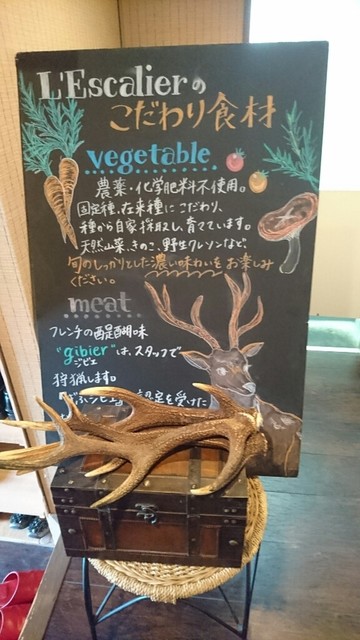 L'Escalierの
こだわり食材
vegetable
農薬・化学肥料不使用。
固定種、在来種にこだわり、
種から自家採取し、育てています。
天然山菜、きのこ、野生クレソンなど、
旬のしっかりとした濃い味わいをお楽しみ
ください。
meat
フレンチの醍醐味
"gibier"は、スタッフで
ジビエ
狩猟します。
認定を受けた